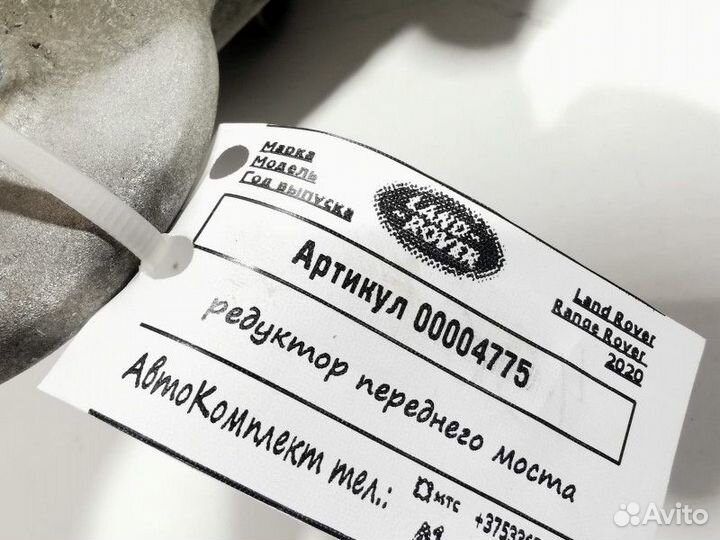 Марка
Модель
Год выпуска
LAND-
ROVER
Land Rover
Range Rover
2020
Артикул 00004775
редуктор переднего моста
АвтоКомплект тел.:
мтс
Avito